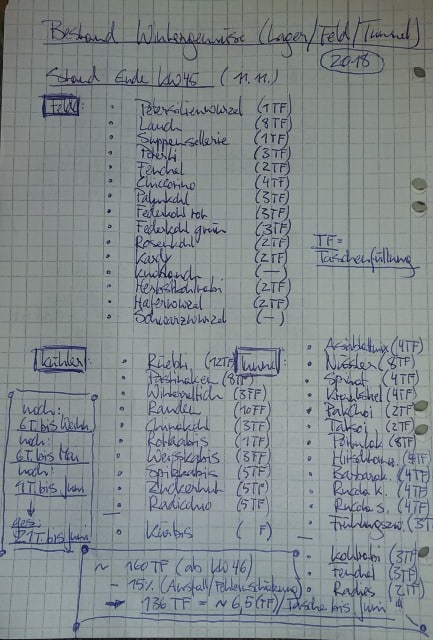 Bestand Wintergemüse (Lager/Feld/Tunnel)
2018
Stand Ende KW45 (11.11.)
Feld:
• Petersilienwurzel (1TF)
• Lauch (8TF)
• Suppensellerie (1TF)
• Peterli (3TF)
• Fenchel (2TF)
• Chiccorino (4TF)
• Palmkohl (3TF)
• Federkohl rot (3TF)
• Federkohl grün (3TF)
• Rosenkohl (2TF)
• (2TF)
• Knoblauch (—)
• Herbstkohlrabi (2TF)
• Haferwurzel (2TF)
• Schwarzwurzel (—)
TF =
Taschenfüllung
Kühler:
• Rüebli (12TF)
• Pastinaken (8TF)
• Winterrettich (3TF)
• Randen (10TF)
• Chinakohl (3TF)
• Rotkabis (1TF)
• Weisskabis (3TF)
• Spitzkabis (5TF)
• Zuckerhut (5TF)
• Radicchio (5TF)
• Kürbis ( F)
noch:
6T bis
noch:
6T bis Mai
noch:
9T bis Juni
↓
ges:
21T bis Juni
Tunnel:
• Asiablattmix (4TF)
• Nüssler (8TF)
• Spinat (4TF)
• Krautstiel (4TF)
• Pak Choi (2TF)
• Tatsoi (2TF)
• Portulak (8TF)
• Hirschhorn. (4TF)
• Barbarak. (4TF)
• Rucola k. (4TF)
• Rucola s. (4TF)
• Frühlingszw. (3T
• Kohlrabi (3TF)
• Fenchel (3TF)
• Radies (2TF)
~ 160TF (ab KW46)
- 15% (Ausfall/Fehleinschätzung)
→ 136TF = ~ 6,5(TF)/Tasche bis Juni